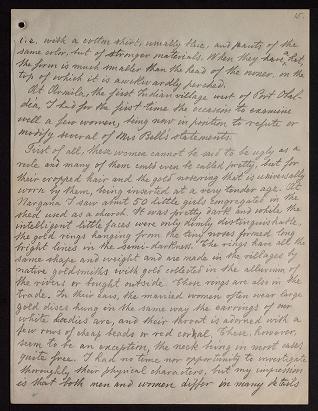 15.
i.e. with a cotton shirt, usually blue, and pants of the
same color, but of stronger materials. When they have a hat,
the form is much smaller than the head of the wearer, on the
top of which it is awkwardly perched.
At the first Indian village west of Port Obal-
dea, I had for the first time the occasion to examine
well a few women, being now in position to refute or
modify several of Mrs Bell's statements.
First of all, these women cannot be said to be ugly as a
rule and many of them could even be called pretty, but for
their cropped hair and the gold nosering that is universally
worn by them, being inserted at a very tender age. At
Nargana I saw about 50 little girls congregated in the
shed used as a church. It was pretty dark and while the
intelligent little faces were only dimly distinguishable
the gold rings hanging from the tiny noses formed
bright lines in the semi-darkness. The rings have all the
same shape and weight and are made in the villages by
native goldsmiths with gold collected in the alluvium of
the rivers or bought outside. These rings are also in the
trade. In their ears, the married women often wear large
gold discs hung in the same way the earrings of our
white ladies are, and their throat is adorned with a
few rows of cheap beads or red coral. These, however,
seem to be an exception, the neck being in most cases
quite free. I had no time nor opportunity to investigate
thoroughly their physical characters, but my impression
is that both men and women differ in many details